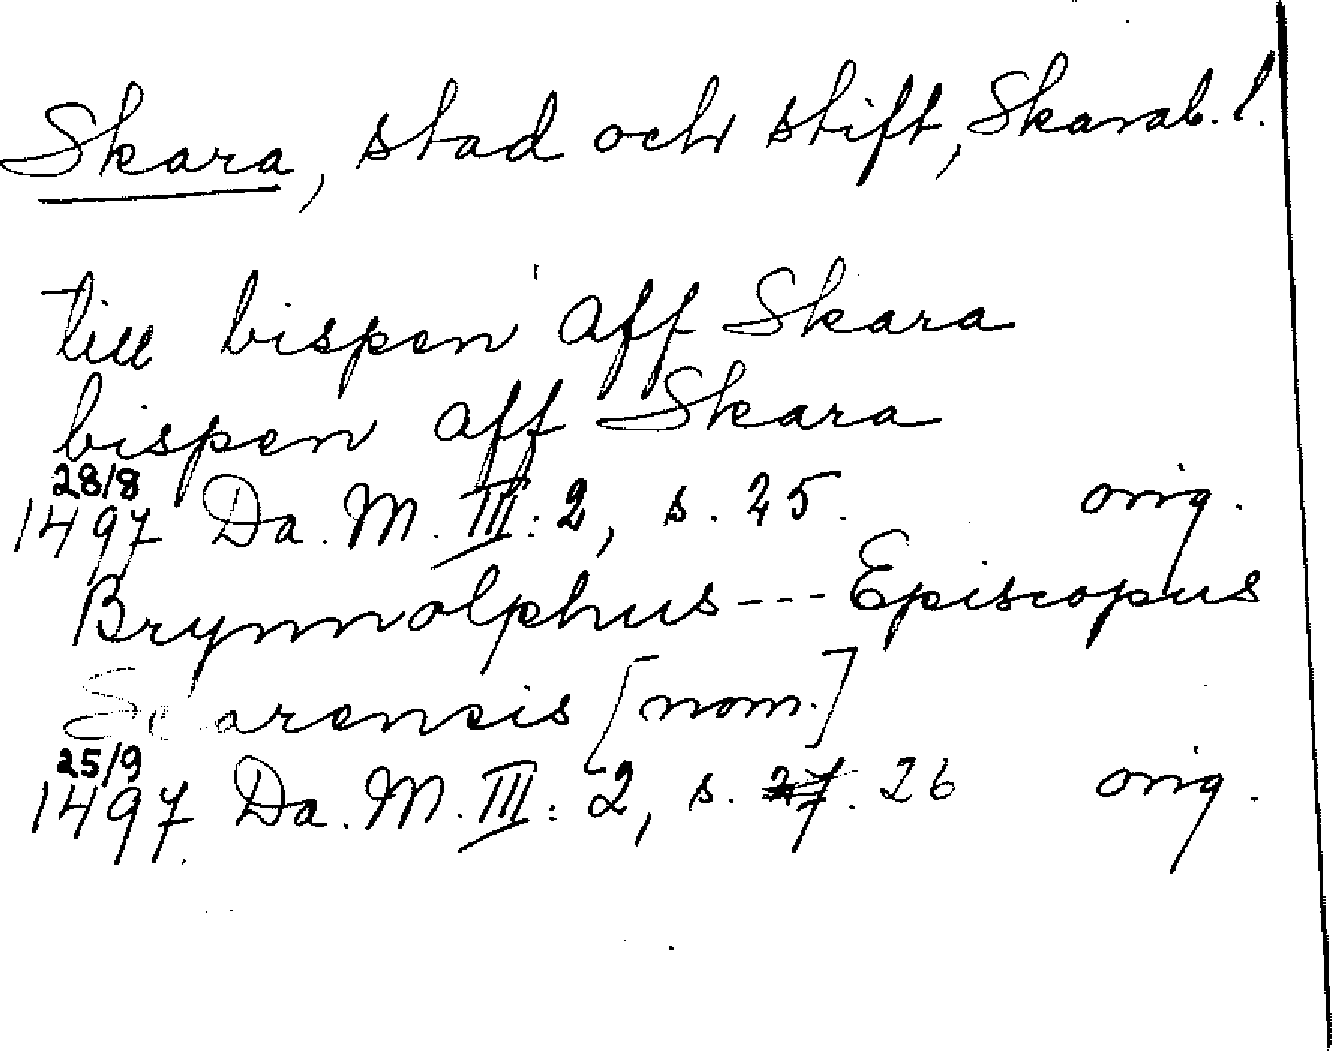 Skara, stad och stift, Skarab. l.
till bispen aff Skara
bispen aff Skara
28/8
1497 Da. M. III: 2, s. 25. orig.
Brynnolphus --- Episcopus
Scarensis [nom.]
25/9
1497. Da. M. III: 2, s. 27. 26 orig.